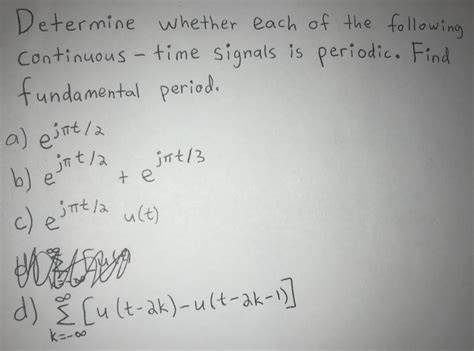 Determine whether each of the following
continuous - time signals is periodic. Find
fundamental period.
a) e^{jπt/2}
b) e^{jπt/2} + e^{jπt/3}
c) e^{jπt/2} u(t)
d) ∞ Σ k=-∞ [u(t-2k)-u(t-2k-1)]